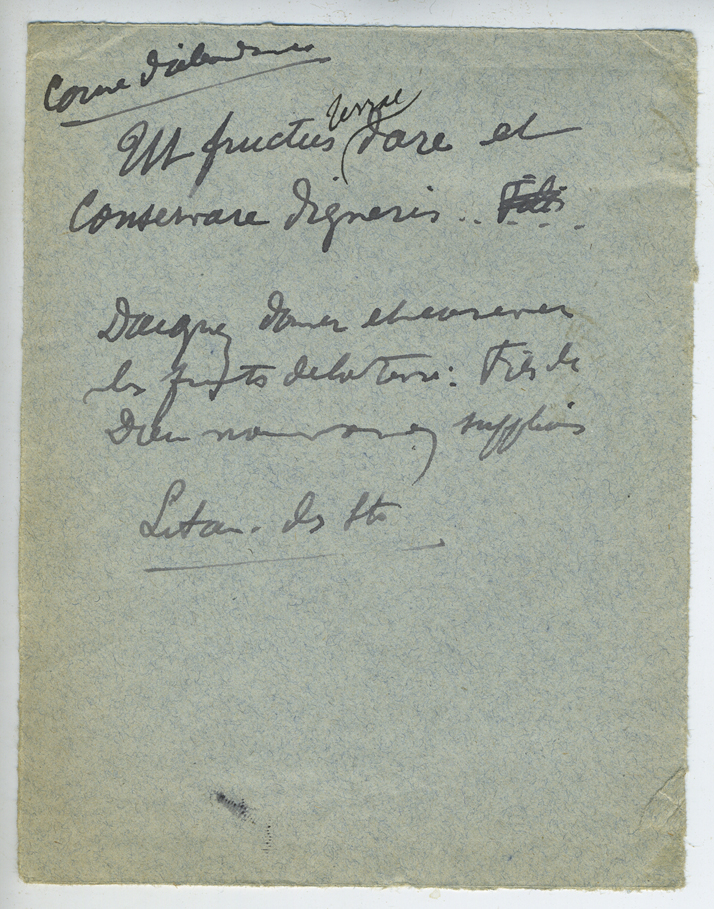 Corne d'abondance
terrae
Ut fructus dare et
Conservare digneris .. Filis
Daignez donner et conserver
les fruits de la Terre : Fils de
Dieu nous vous en supplions
Litan. des Sts